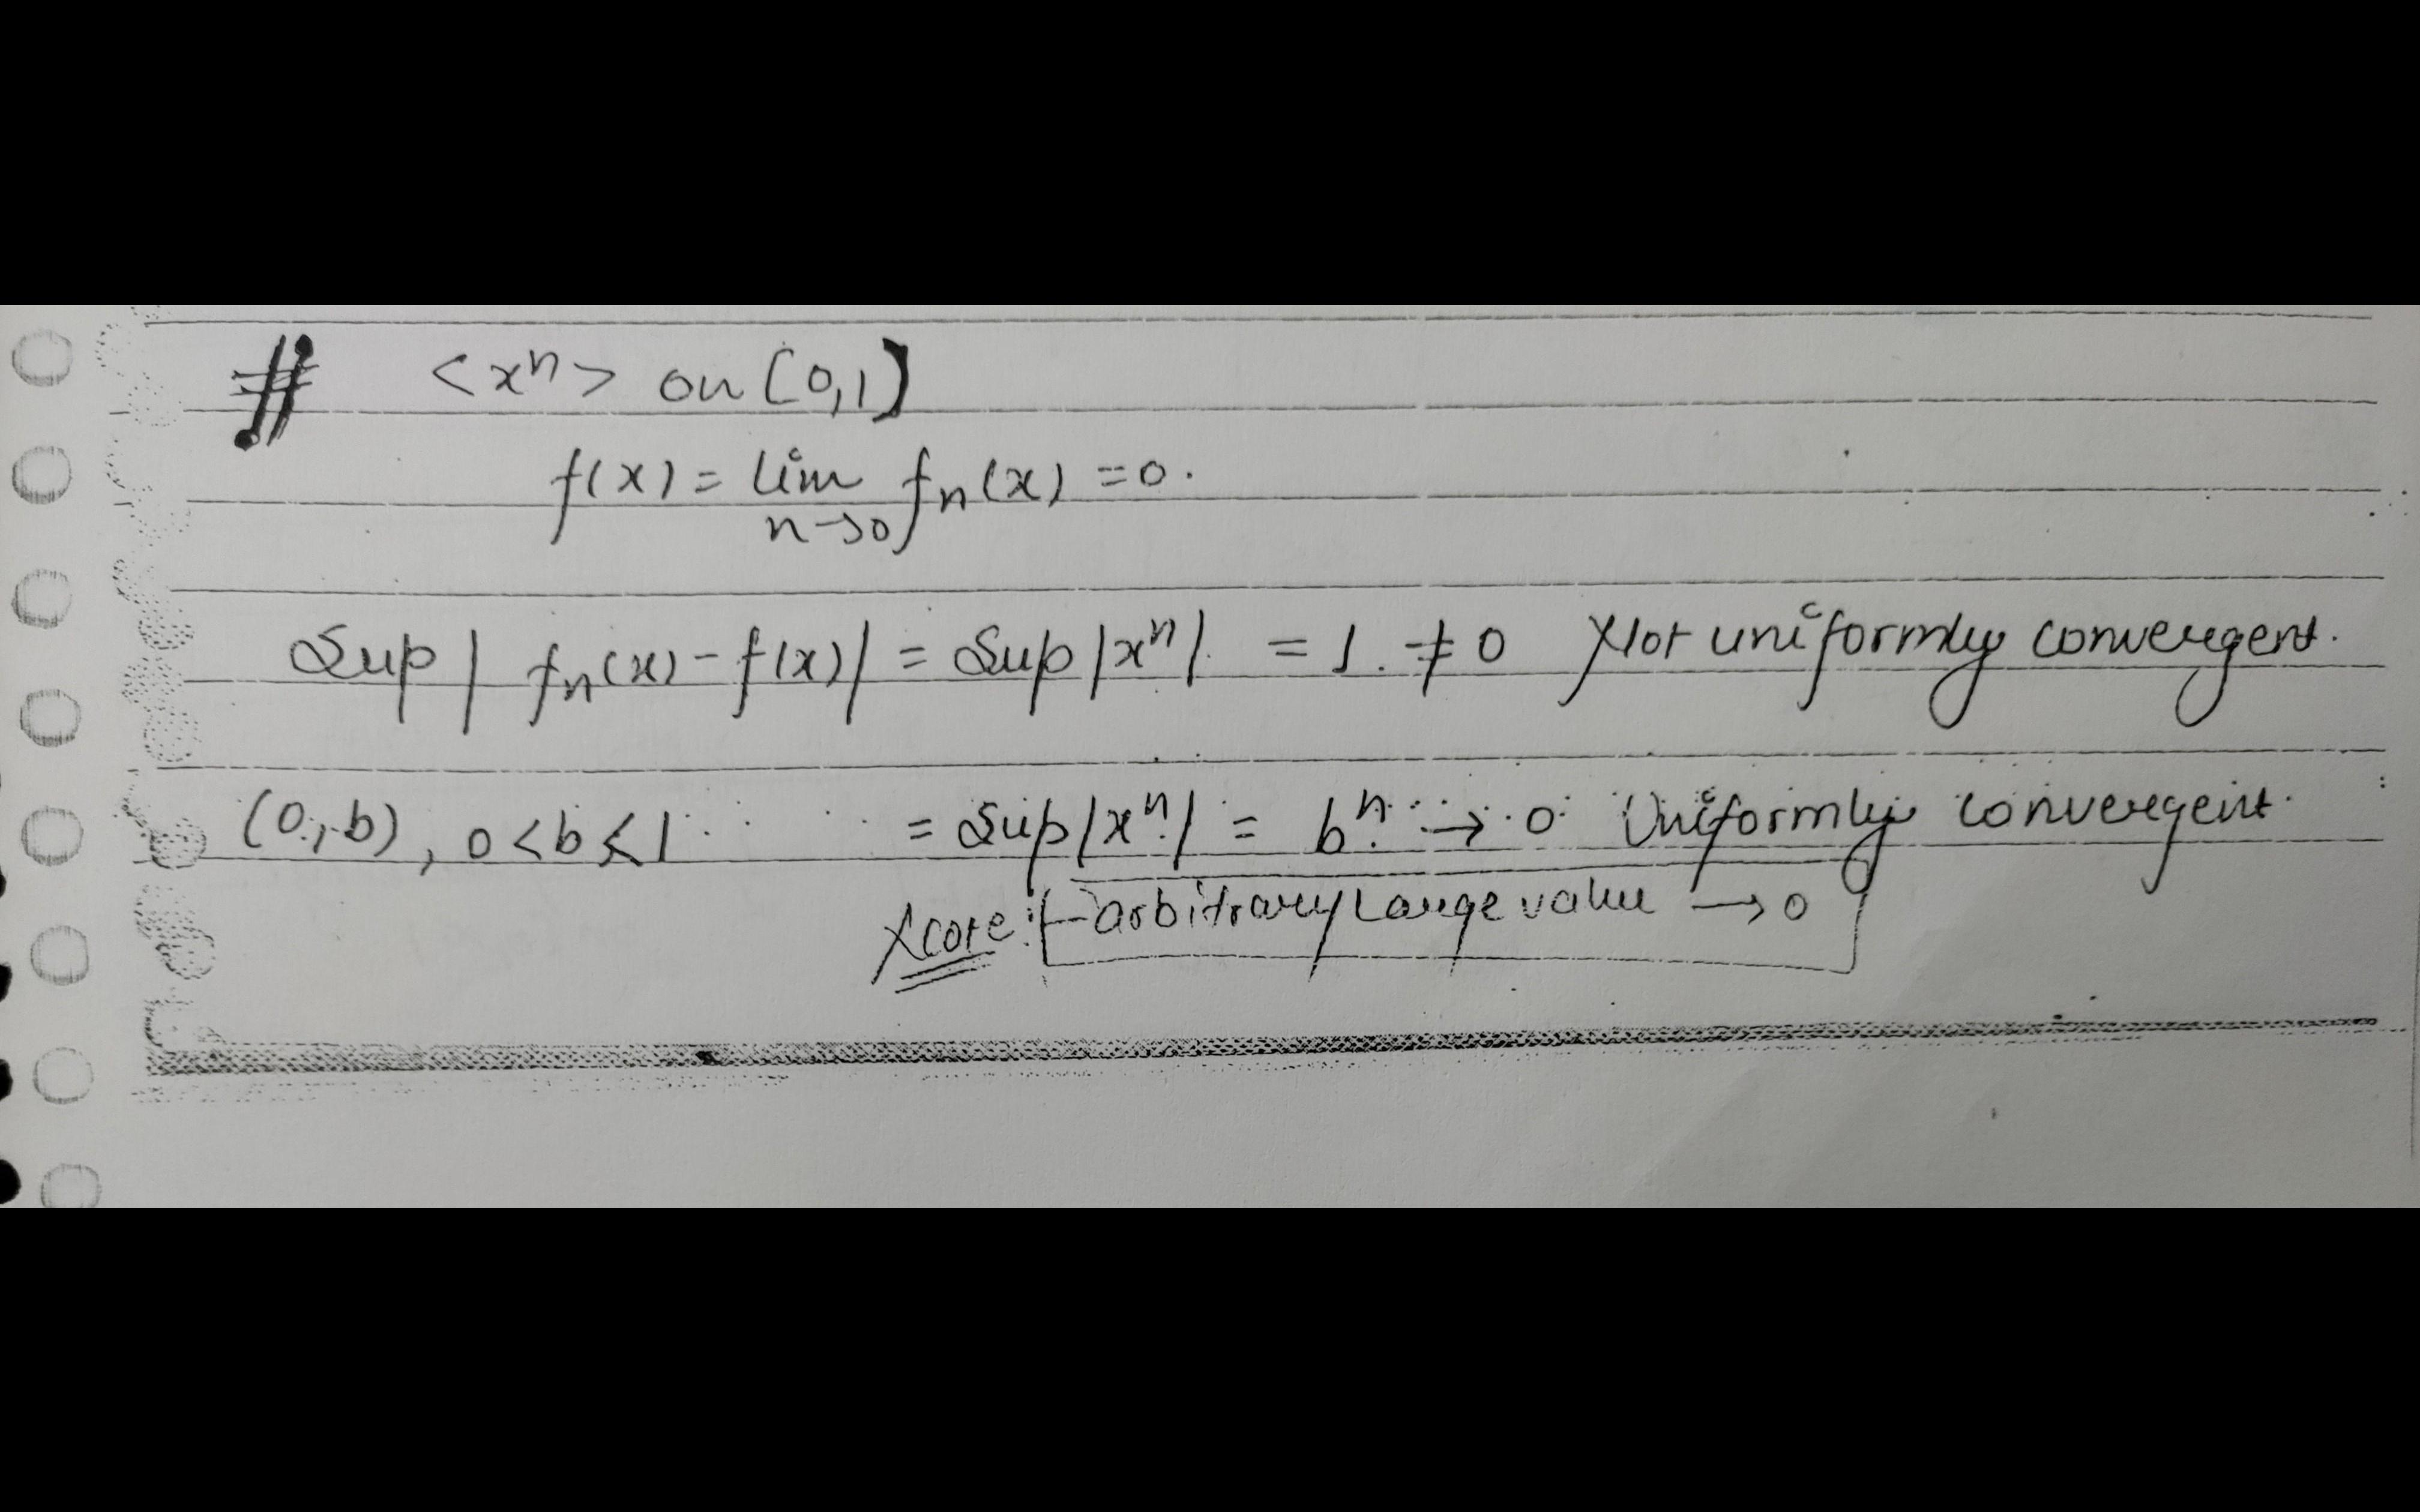 # <xⁿ> on [0,1]
f(x) = lim n→0 fₙ(x) = 0.
Sup | fₙ(x) - f(x)| = Sup |xⁿ| = 1. ≠ 0 Not uniformly convergent.
(0, b), 0 < b ≤ 1 = Sup |xⁿ| = bⁿ → 0 Uniformly convergent.
arbitrary Large value → 0